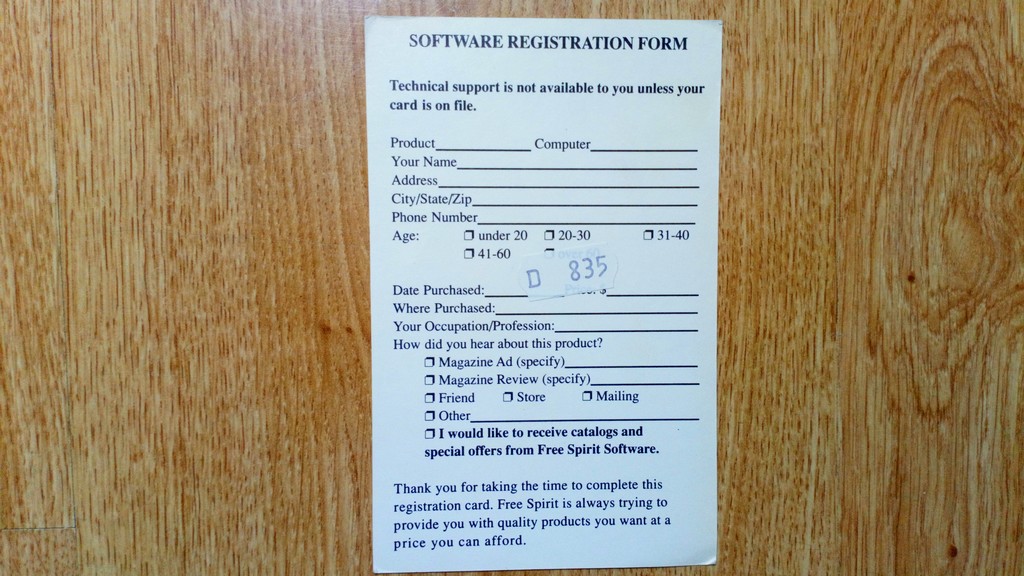 SOFTWARE REGISTRATION FORM
Technical support is not available to you unless your
card is on file.
Product Computer
Your Name
Address
City/State/Zip
Phone Number
Age: ❒ under 20 ❒ 20-30 ❒ 31-40
❒ 41-60
D 835
Date Purchased:
Where Purchased:
Your Occupation/Profession:
How did you hear about this product?
❒ Magazine Ad (specify)
❒ Magazine Review (specify)
❒ Friend ❒ Store ❒ Mailing
❒ Other
❒ I would like to receive catalogs and
special offers from Free Spirit Software.
Thank you for taking the time to complete this
registration card. Free Spirit is always trying to
provide you with quality products you want at a
price you can afford.